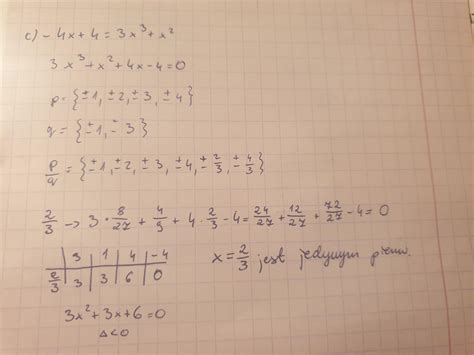 c) - 4x + 4 = 3x³ + x²
3x³ + x² + 4x - 4 = 0
p = {±1, ±2, ±3, ±4}
q = {±1, ±3}
p/q = {±1, ±2, ±3, ±4, ±2/3, ±4/3}
2/3 → 3 · 8/27 + 4/9 + 4 · 2/3 - 4 = 24/27 + 12/27 + 72/27 - 4 = 0
3 | 1 | 4 | -4
2/3 | 3 | 3 | 6 | 0
x = 2/3 jest jedynym pierw.
3x² + 3x + 6 = 0
Δ < 0